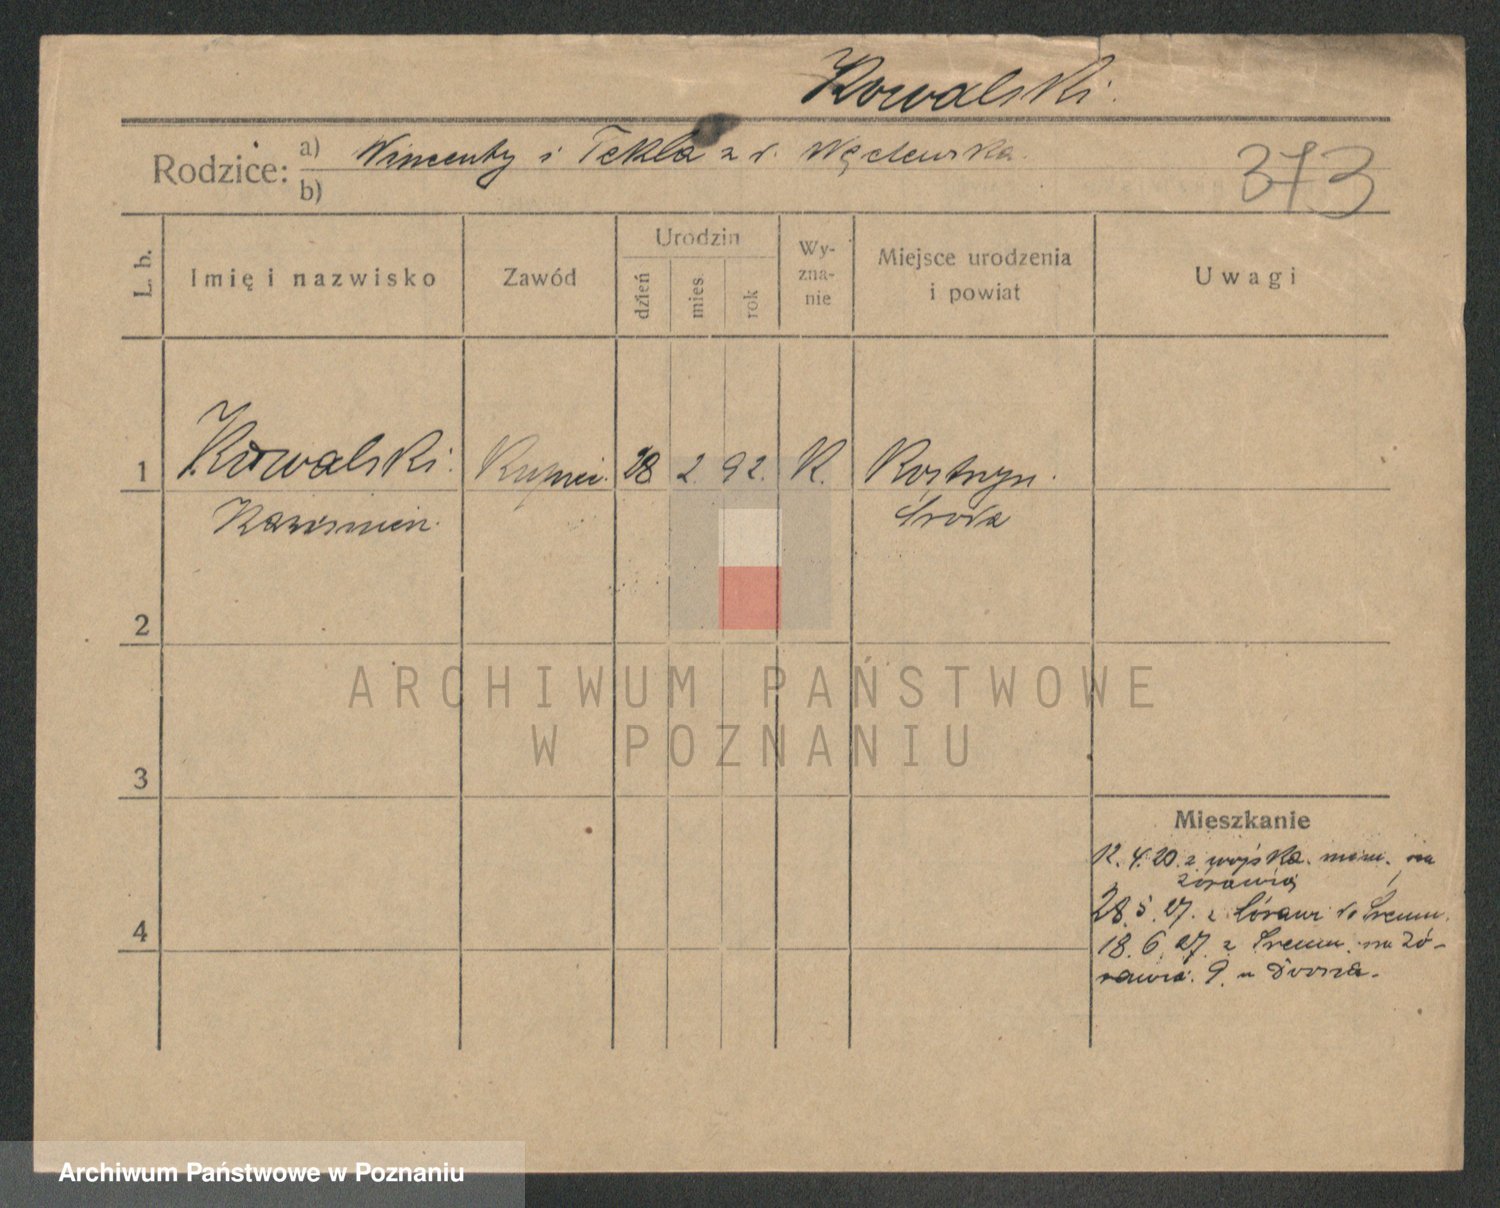 Kowalski.
Rodzice: a) Wincenty i Tekla z d. Węclewska.
b)
373
L. b.
Imię i nazwisko
Zawód
Urodzin
dzień
mies.
rok
Wy-
zna-
nie
Miejsce urodzenia
i powiat
Uwagi
1 Kowalski. Kupiec. 28 2. 92. K. Kostrzyn.
Kazimierz. Środa
2
3
4
ARCHIWUM PAŃSTWOWE
W POZNANIU
Mieszkanie
12. 4. 20. z wojska. na
Żórawia
28. 5. 27. z Śrem.
18. 6. 27. z Śrem. na Żó-
rawia. 9. u
Archiwum Państwowe w Poznaniu